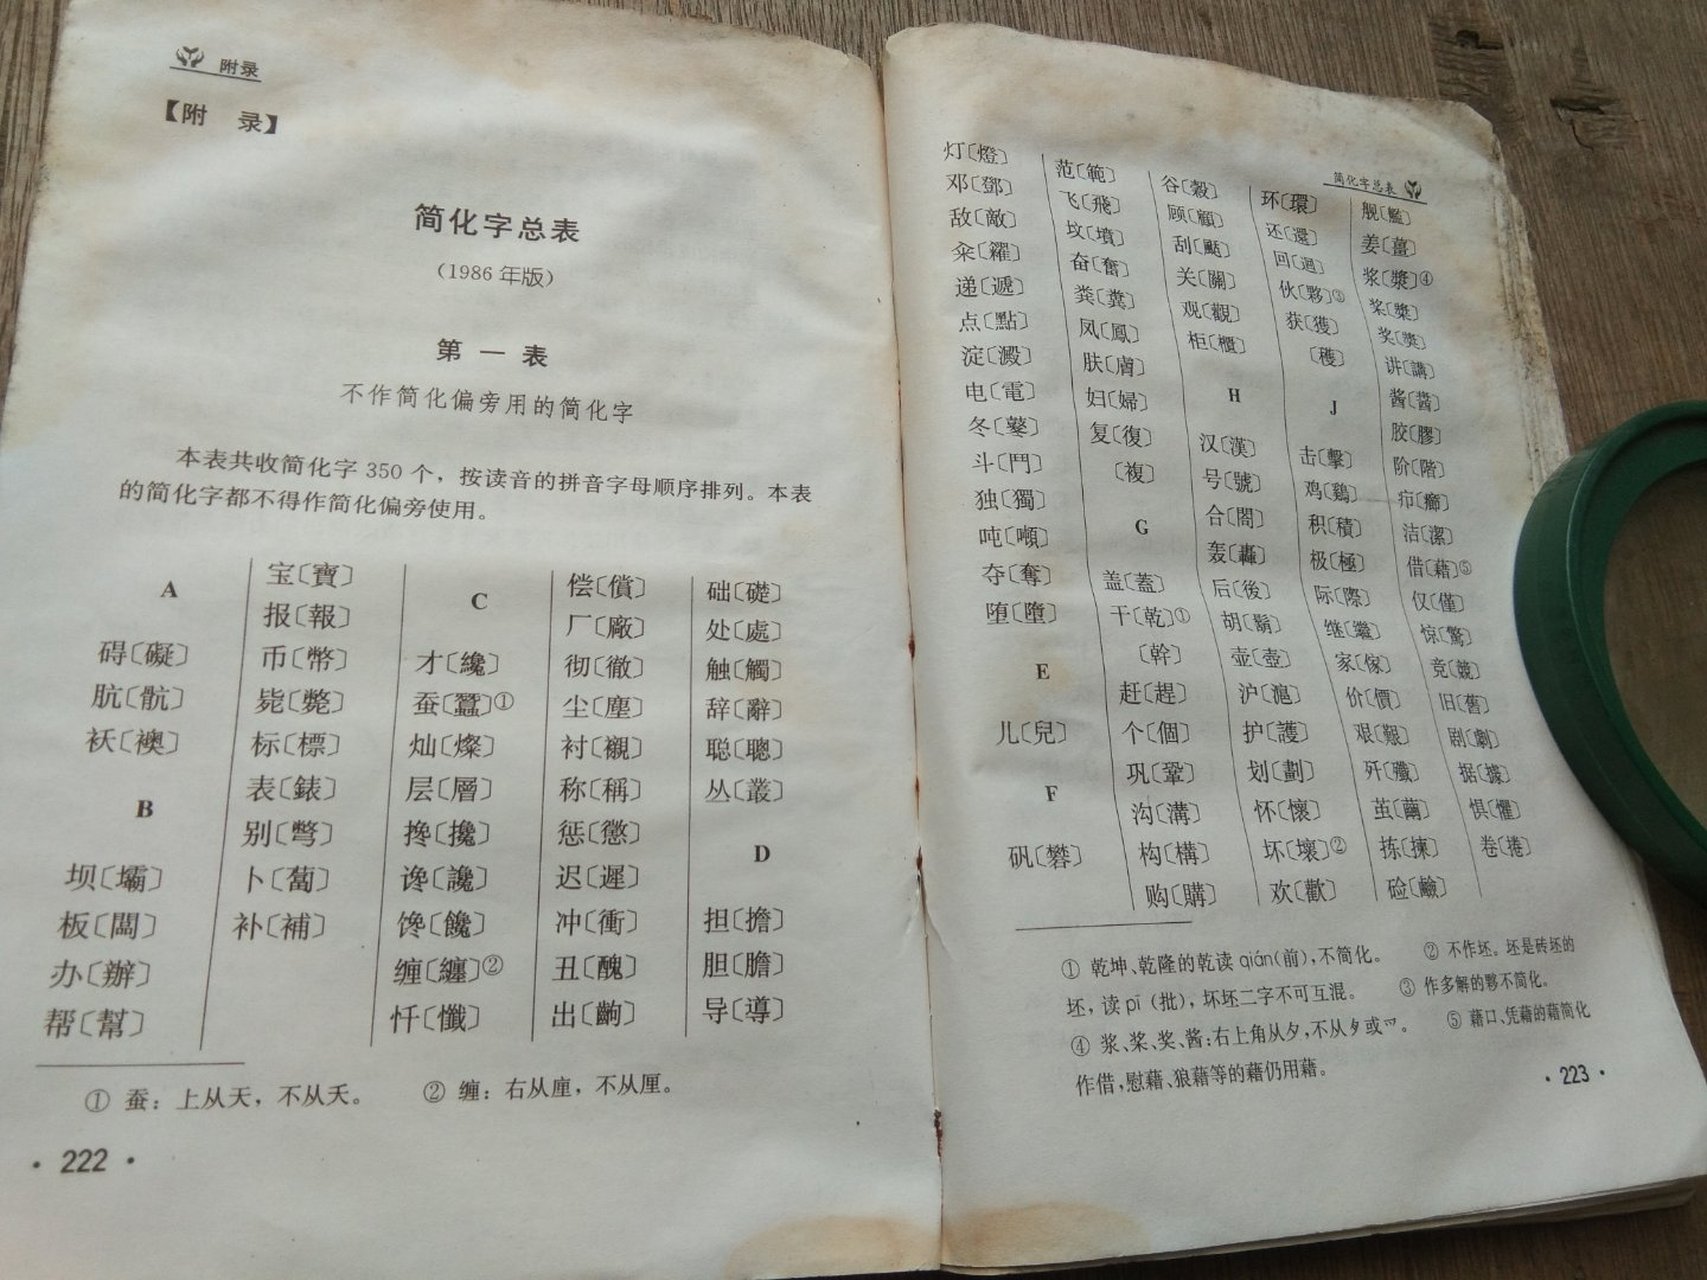 附录
【附 录】
简化字总表
（1986 年版）
第 一 表
不作简化偏旁用的简化字
本表共收简化字 350 个，按读音的拼音字母顺序排列。本表
的简化字都不得作简化偏旁使用。
A
碍〔礙〕
肮〔骯〕
袄〔襖〕
B
坝〔壩〕
板〔闆〕
办〔辦〕
帮〔幫〕
宝〔寶〕
报〔報〕
币〔幣〕
毙〔斃〕
标〔標〕
表〔錶〕
别〔彆〕
卜〔蔔〕
补〔補〕
C
才〔纔〕
蚕〔蠶〕①
灿〔燦〕
层〔層〕
搀〔攙〕
谗〔讒〕
馋〔饞〕
缠〔纏〕②
忏〔懺〕
偿〔償〕
厂〔廠〕
彻〔徹〕
尘〔塵〕
衬〔襯〕
称〔稱〕
惩〔懲〕
迟〔遲〕
冲〔衝〕
丑〔醜〕
出〔齣〕
础〔礎〕
处〔處〕
触〔觸〕
辞〔辭〕
聪〔聰〕
丛〔叢〕
D
担〔擔〕
胆〔膽〕
导〔導〕
① 蚕：上从天，不从夭。 ② 缠：右从㢆，不从厘。
· 222 ·
简化字总表
灯〔燈〕
邓〔鄧〕
敌〔敵〕
籴〔糴〕
递〔遞〕
点〔點〕
淀〔澱〕
电〔電〕
冬〔鼕〕
斗〔鬥〕
独〔獨〕
吨〔噸〕
夺〔奪〕
堕〔墮〕
E
儿〔兒〕
F
矾〔礬〕
范〔範〕
飞〔飛〕
坟〔墳〕
奋〔奮〕
粪〔糞〕
凤〔鳳〕
肤〔膚〕
妇〔婦〕
复〔復〕
〔複〕
G
盖〔蓋〕
干〔乾〕①
〔幹〕
赶〔趕〕
个〔個〕
巩〔鞏〕
沟〔溝〕
构〔構〕
购〔購〕
谷〔穀〕
顾〔顧〕
刮〔颳〕
关〔關〕
观〔觀〕
柜〔櫃〕
H
汉〔漢〕
号〔號〕
合〔閤〕
轰〔轟〕
后〔後〕
胡〔鬍〕
壶〔壺〕
沪〔滬〕
护〔護〕
划〔劃〕
怀〔懷〕
坏〔壞〕②
欢〔歡〕
环〔環〕
还〔還〕
回〔迴〕
伙〔夥〕③
获〔獲〕
〔穫〕
J
击〔擊〕
鸡〔鷄〕
积〔積〕
极〔極〕
际〔際〕
继〔繼〕
家〔傢〕
价〔價〕
艰〔艱〕
歼〔殲〕
茧〔繭〕
拣〔揀〕
硷〔鹼〕
舰〔艦〕
姜〔薑〕
浆〔漿〕④
桨〔槳〕
奖〔獎〕
讲〔講〕
酱〔醬〕
胶〔膠〕
阶〔階〕
疖〔癤〕
洁〔潔〕
借〔藉〕⑤
仅〔僅〕
惊〔驚〕
竞〔競〕
旧〔舊〕
剧〔劇〕
据〔據〕
惧〔懼〕
卷〔捲〕
① 乾坤、乾隆的乾读 qián（前），不简化。 ② 不作坯。坯是砖坯的
坯，读 pī（批），坏坯二字不可互混。 ③ 作多解的夥不简化。
④ 浆、桨、奖、酱：右上角从夕，不从夕或爫。 ⑤ 藉口、凭藉的藉简化
作借，慰藉、狼藉等的藉仍用藉。
· 223 ·